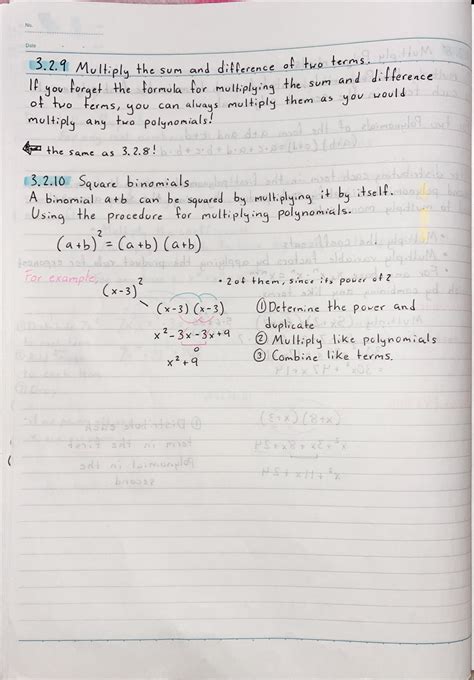 No.
Date
3.2.9 Multiply the sum and difference of two terms.
If you forget the formula for multiplying the sum and difference
of two terms, you can always multiply them as you would
multiply any two polynomials!
⇐ the same as 3.2.8!
3.2.10 Square binomials
A binomial a+b can be squared by multiplying it by itself.
Using the procedure for multiplying polynomials.
(a+b)² = (a+b)(a+b)
For example,
(x-3)²
(x-3)(x-3)
x²-3x-3x+9
0
x²+9
• 2 of them, since its power of 2
① Determine the power and
duplicate
② Multiply like polynomials
③ Combine like terms.